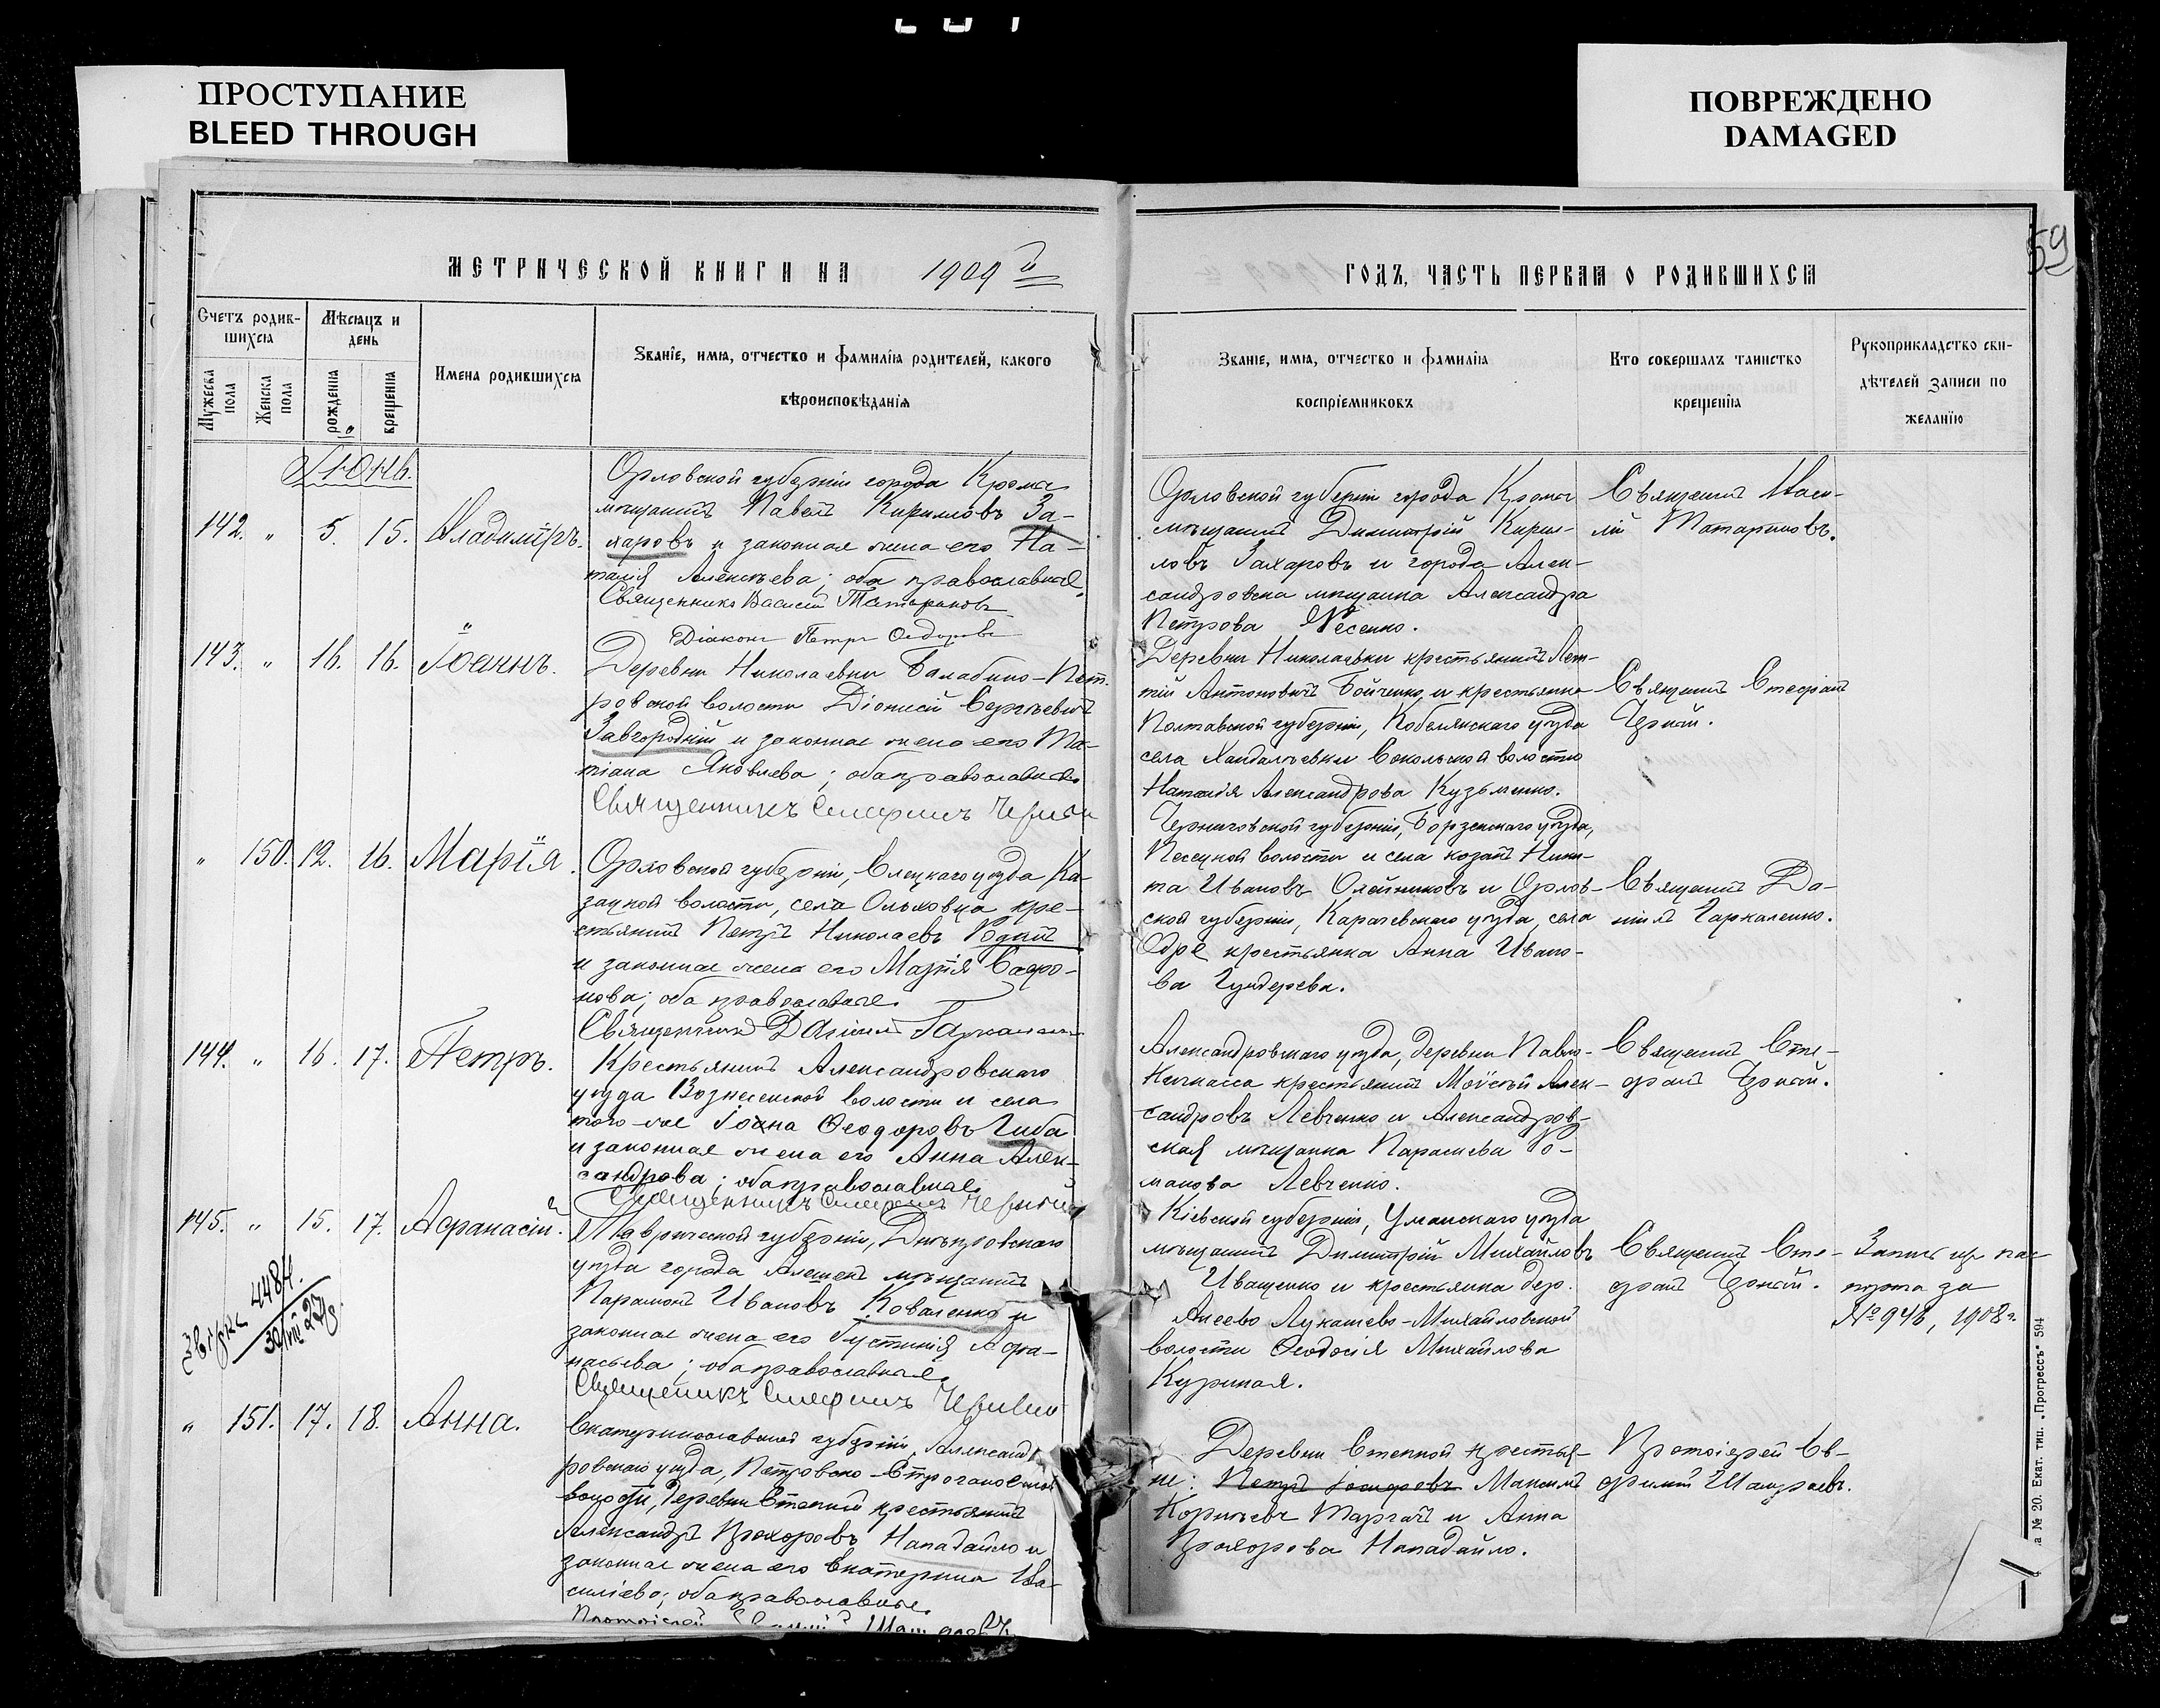 ПРОСТУПАНИЕ
BLEED THROUGH
ПОВРЕЖДЕНО
DAMAGED
59
МЕТРИЧЕСКОЙ КНИГИ НА 1909й
ГОДЪ, ЧАСТЬ ПЕРВАЯ О РОДИВШИХСЯ
Счетъ родив-
шихся
Мѣсяцъ и
день
Мужеска
пола
Женска
пола
рожденія
крещенія
Имена родившихся
Званіе, имя, отчество и фамилія родителей, какого
вѣроисповѣданія
Званіе, имя, отчество и фамилія
воспріемниковъ
Кто совершалъ таинство
крещенія
Рукоприкладство сви-
дѣтелей записи по
желанію
Іюнь.
142. " 5. 15. Владиміръ.
Орловской губерніи города Кромы
мѣщанинъ Павелъ Кирилловъ За-
харовъ и законная жена его На-
талія Алексѣева; оба православные.
Священникъ Василій Татариновъ
Діаконъ Петръ Федоровъ
Орловской губерніи города Кромы
мѣщанинъ Димитрій Кирил-
ловъ Захаровъ и города Алек-
сандровска мѣщанка Александра
Петрова Несенко.
Священникъ Васи-
лій Татариновъ.
143. " 16. 16. Іоаннъ.
Деревни Николаевки Балабино-Пет-
ровской волости Діонисій Сергѣевичъ
Завгородній и законная жена его Та-
тіана Яковлева; оба православные
Священникъ Стефанъ Черный
Деревни Николаевки крестьянинъ
Антоновичъ Бойченко и крестьянка
Полтавской губерніи, Кобелякскаго уѣзда
села Хандалѣевки Сокольской волости
Наталія Александрова Кузьменко.
Священникъ Стефанъ
Черный.
" 150. 12. 16. Марія.
Орловской губерніи, Елецкаго уѣзда Ка-
зацкой волости, села Ольховца кре-
стьянинъ Петръ Николаевъ
и законная жена его Марія Сафро-
нова; оба православные.
Священникъ Даніилъ Гаркаленко
Черниговской губерніи, Борзенскаго уѣзда,
волости и села козакъ Ники-
та Ивановъ Олейниковъ и Орлов-
ской губерніи, Карачевскаго уѣзда, села
Одрё крестьянка Анна Ивано-
ва Гундерева.
Священникъ Да-
ніилъ Гаркаленко.
144. " 16. 17. Петръ.
Крестьянинъ Александровскаго
уѣзда Вознесенской волости и села
того-же Іоанна Ѳеодоровъ Гиба
и законная жена его Анна Алек-
сандрова; оба православные
Священникъ Стефанъ Черный
Александровскаго уѣзда, деревни Павло-
Кичкасса крестьянинъ Моѵсей Алек-
сандровъ Левченко и Александров-
ская мѣщанка Параскева Ро-
манова Левченко.
Священникъ Сте-
фанъ Черный.
145. " 15. 17. Афанасій.
4484.
Таврической губерніи, Днѣпровскаго
уѣзда города Алешекъ мѣщанинъ
Парамонъ Ивановъ Коваленко и
законная жена его Іустинія Афа-
насьева; оба православные
Священникъ Стефанъ Черный
Кіевской губерніи, Уманскаго уѣзда
мѣщанинъ Димитрій Михайловъ
Иващенко и крестьянка дер.
Лукашево-Михайловской
волости Ѳеодосія Михайлова
Куриная.
Священникъ Сте-
фанъ Черный.
№ 948, 1908 г.
" 151. 17. 18. Анна.
Екатеринославской губерніи, Александ-
ровскаго уѣзда, Петровско-Строгановской
волости, деревни Степной крестьянинъ
Александръ Прохоровъ Нападайло и
законная жена его Екатерина Ва-
силіева; оба православные.
Деревни Степной крестья-
не: Максимъ
Корнѣевъ Таргай и Анна
Прохорова Нападайло.
Протоіерей Ев-
фимій
а № 20. Екат. тип. „Прогрессъ" 594